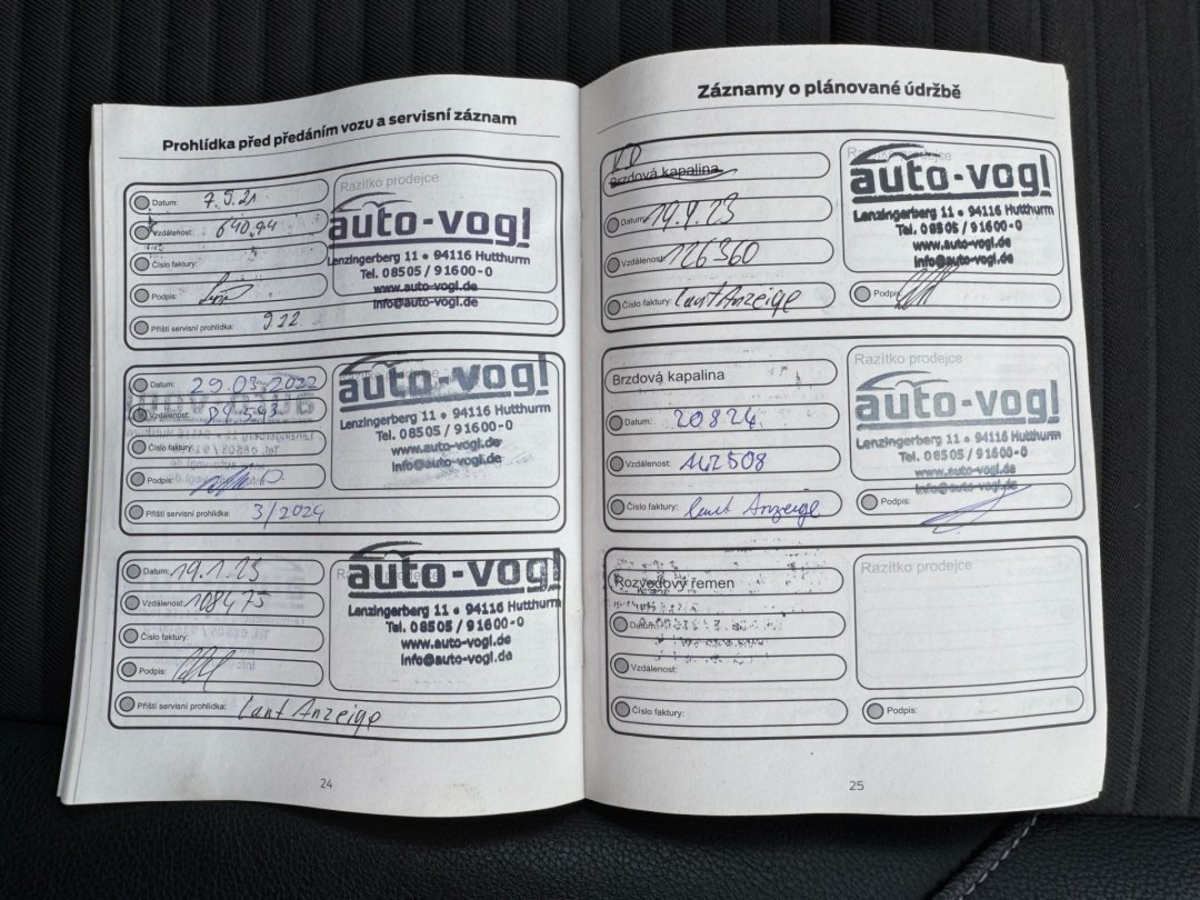 Prohlídka před předáním vozu a servisní záznam
Datum: 7.9.21
Vzdálenost: 64094
Číslo faktury:
Podpis:
Příští servisní prohlídka: 9 22
Razítko prodejce
auto-vogl
Lenzingerberg 11 • 94116 Hutthurm
Tel. 08505 / 91600-0
www.auto-vogl.de
info@auto-vogl.de
Datum: 29.03.2022
Vzdálenost: 84.593
Číslo faktury:
Podpis:
Příští servisní prohlídka: 3/2024
auto-vogl
Lenzingerberg 11 • 94116 Hutthurm
Tel. 08505 / 91600-0
www.auto-vogl.de
info@auto-vogl.de
Datum: 19.1.23
Vzdálenost: 108475
Číslo faktury:
Podpis:
Příští servisní prohlídka: Laut Anzeige
auto-vogl
Lenzingerberg 11 • 94116 Hutthurm
Tel. 08505 / 91600-0
www.auto-vogl.de
info@auto-vogl.de
24
Záznamy o plánované údržbě
Brzdová kapalina
Datum: 19.9.23
Vzdálenost: 126360
Číslo faktury: Laut Anzeige
Razítko prodejce
auto-vogl
Lenzingerberg 11 • 94116 Hutthurm
Tel. 08505 / 91600-0
www.auto-vogl.de
info@auto-vogl.de
Podpis:
Brzdová kapalina
Datum: 20.8.24.
Vzdálenost: 142508
Číslo faktury: laut Anzeige
Razítko prodejce
auto-vogl
Lenzingerberg 11 • 94116 Hutthurm
Tel. 08505 / 91600-0
www.auto-vogl.de
info@auto-vogl.de
Podpis:
Rozvodový řemen
Datum:
Vzdálenost:
Číslo faktury:
Razítko prodejce
Podpis:
25